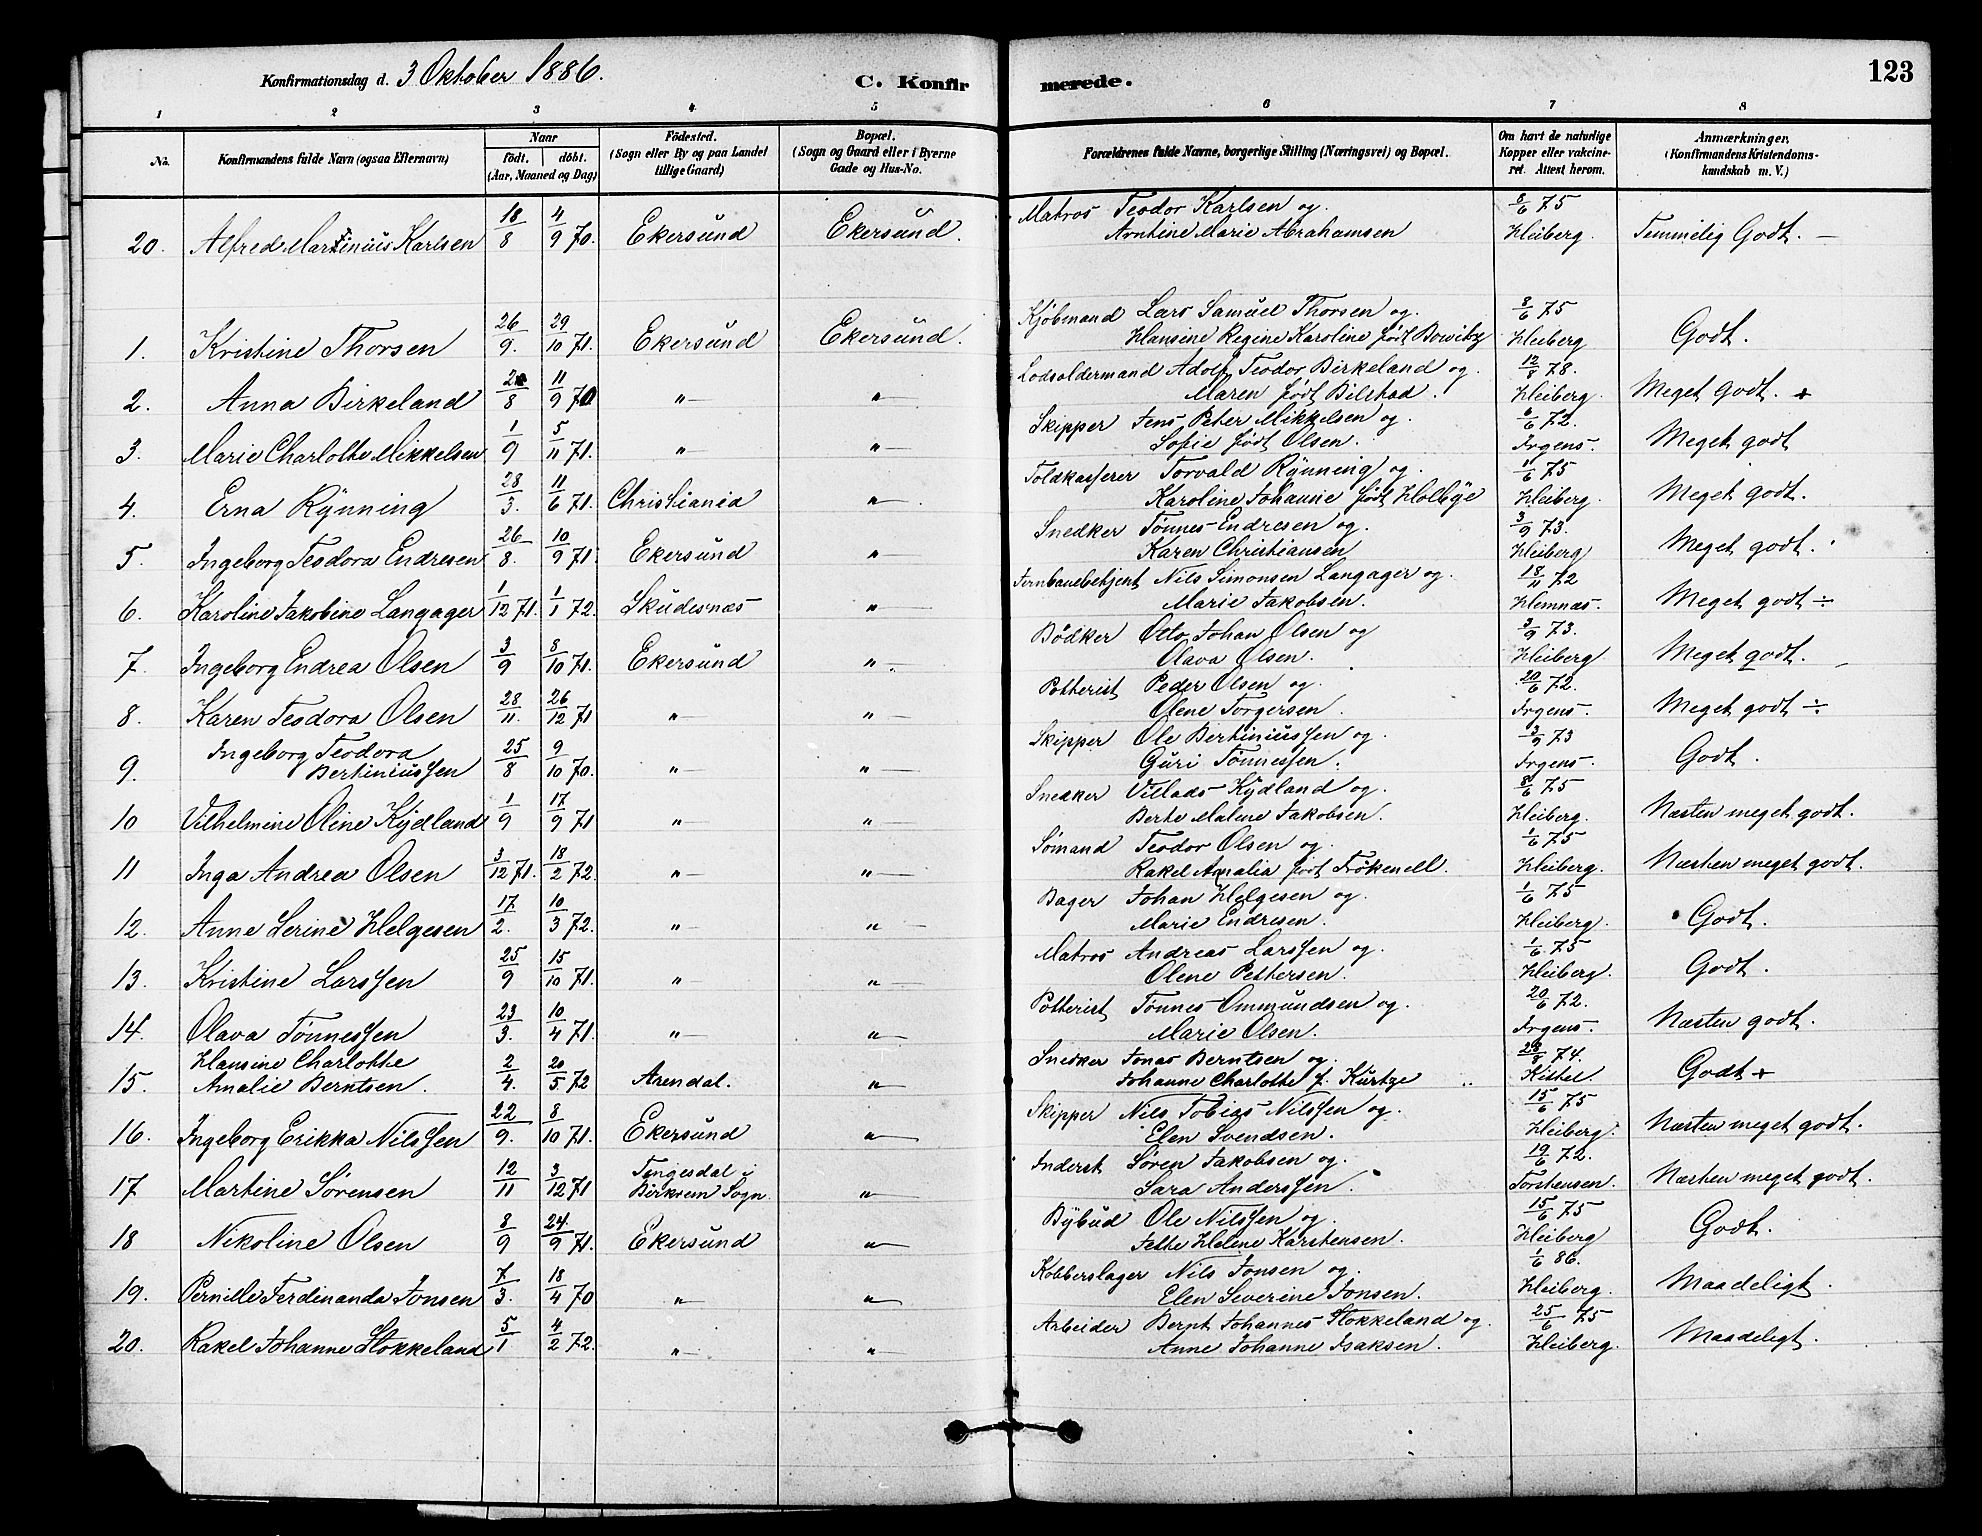 Konfirmationsdag d. 3 Oktober 1886.
C. Konfirmerede.
123
1 2 3 4 5 6 7 8
No.
Konfirmandens fulde Navn (ogsaa Efternavn)
Naar
födt. döbt.
(Aar, Maaned og Dag)
Födested.
(Sogn eller By og paa Landet
tillige Gaard)
Bopæl.
(Sogn og Gaard eller i Byerne
Gade og Hus-No.
Forældrenes fulde Navne, borgerlige Stilling (Næringsvei) og Bopæl.
Om havt de naturlige
Kopper eller vakcine-
ret. Attest herom.
Anmærkninger.
(Konfirmandens Kristendoms-
kundskab m. V.)
20. Alfred Martinius Karlsen 18/8 4/9 70. Ekersund Ekersund. Matros Teodor Karlsen og 8/6 75
Arntine Marie Abrahamsen Heiberg. Temmelig Godt. —
1. Kristine Thorsen 26/9. 29/10 71. Ekersund Ekersund. Kjöbmand Lars Samuel Thorsen og. 8/6 75
Hansine Regine Karoline født Bowitz Heiberg Godt.
2. Anna Birkeland 8 11/9 70 " " Lodsoldermand Adolf Teodor Birkeland og. 12/8 78.
Maren født Bilstad. Heiberg. Meget Godt. +
3. Marie Charlotte Mikkelsen 1/9 5/11 71. " " Skipper Jens Peter Mikkelsen og. 6/6 72.
Sofie født Olsen. Irgens. Meget godt
4. Erna Rynning 28/3. 11/6 71. Christiania " Toldkasserer Torvald Rynning og. 1/6 75
Karoline Johanne født Holbye Heiberg. Meget godt.
5. Ingeborg Teodora Endresen 26/8. 10/9 71. Ekersund " Snedker Tönnes Endresen og. 3/9 73.
Karen Christiansen Heiberg Meget godt.
6. Karoline Jakobine Langager 1/12 71. 1/1 72. Skudesnæs " Jernbanebetjent Nils Simonsen Langager og. 18/11 72
Marie Jakobsen. Hemnæs. Meget godt ÷
7. Ingeborg Endrea Olsen 3/9 8/10 71. Ekersund " Bödker Otto Johan Olsen og 3/9 73.
Olava Olsen. Heiberg Meget godt.
8. Karen Teodora Olsen 28/11. 26/12 71 " " Potterist Peder Olsen og. 20/6 72.
Olene Torgersen. Irgens. Meget godt ÷
9. Ingeborg Teodora
Bertiniussen 25/8 9/10 70. " " Skipper Ole Bertiniussen og. 3/9 73
Guri Tönnessen. Irgens. Godt.
10 Vilhelmine Oline Kydland 1/9 17/9 71 " " Snedker Villads Kydland og. 8/6 75
Berte Malene Jakobsen. Heiberg. Næsten meget godt.
11 Inga Andrea Olsen 3/12 71. 18/2 72. " " Sömand Teodor Olsen og. 1/6 75
Rakel Amalia født Frökenell. Heiberg. Næsten meget godt.
12. Anne Serine Helgesen 17/2. 10/3 72. " " Bager Johan Helgesen og. 1/6 75
Marie Endresen. Heiberg. Godt.
13. Kristine Larssen 25/9 15/10 71. " " Matros Andreas Larssen og. 1/6 75
Olene Pettersen. Heiberg. Godt.
14. Olava Tönnessen 23/3. 10/4 71. " " Potterist Tönnes Ommundsen og. 20/6 72.
Marie Olsen. Irgens. Næsten godt.
15. Hansine Charlotte
Amalie Berntsen. 2/4. 20/5 72 Arendal. " Snedker Jonas Berntsen og. 28/8 74.
Johanne Charlotte f. Kurtze Kittel. Godt +
16. Ingeborg Erikka Nilssen 22/9. 8/10 71. Ekersund " Skipper Nils Tobias Nilssen og. 15/6 75
Elen Svendsen. Heiberg. Næsten meget godt.
17 Martine Sörensen 12/11 3/12 71 Tengesdal i
Birkrem Sogn. " Inderst Sören Jakobsen og. 19/6 72.
Sara Anderssen. Torstensen. Næsten meget godt.
18 Nikoline Olsen 8/9 24./9 71. Ekersund " Bybud Ole Nilssen og. 15/6 75
Jette Helene Karstensen. Heiberg Godt.
19. Pernille Ferdinanda Jonsen 7/3. 18/4 70 " " Kobberslager Nils Jonsen og. 1/6 86.
Elen Severine Jonsen. Heiberg. Maadeligt.
20. Rakel Johanne Stokkeland 5/1 4/2 72. " " Arbeider Bernt Johannes Stokkeland og. 25/6 75
Anne Johanne Isaksen. Heiberg. Maadeligt.